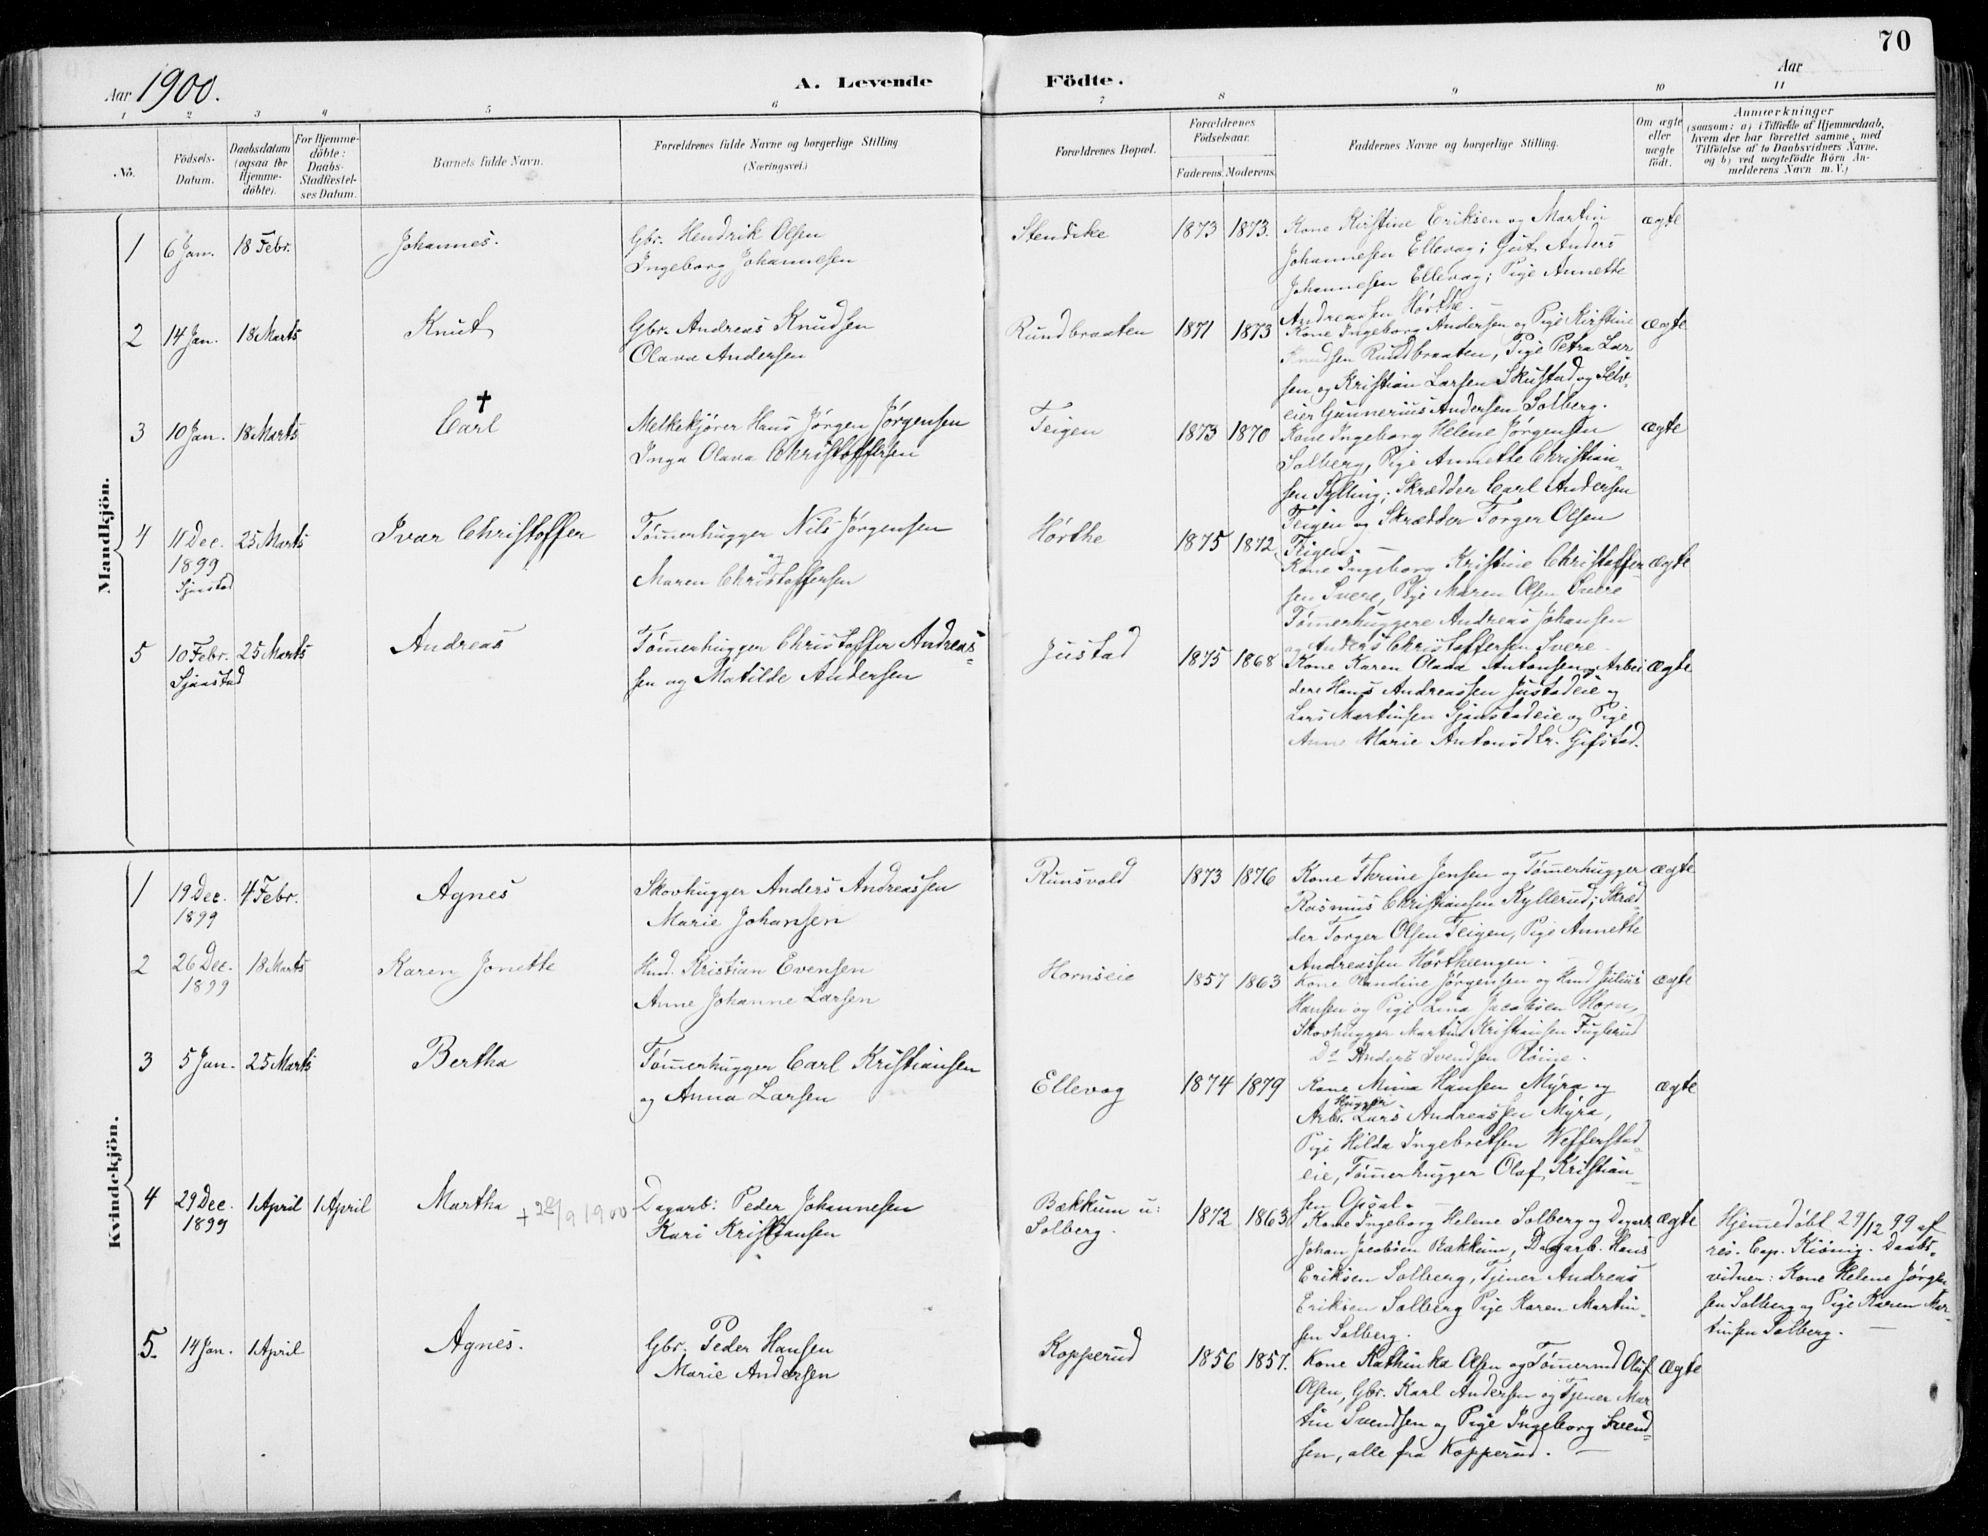 70
Aar 1900.
A. Levende Födte.
Aar
1 2 3 4 5 6 7 8 9 10 11
No.
Födsels-
Datum.
Daabsdatum
(ogsaa for
Hjemme-
döbte).
For Hjemme-
döbte:
Daabs-
Stadfæstel-
ses Datum.
Barnets fulde Navn.
Forældrenes fulde Navne og borgerlige Stilling
(Næringsvei.)
Forældrenes Bopæl.
Forældrenes
Födselsaar.
Faderens. Moderens.
Faddernes Navne og borgerlige Stilling.
Om ægte
eller
uægte
födt.
Anmærkninger
(saasom: a) i Tilfælde af Hjemmedaab,
hvem der har forrettet samme, med
Tilföielse af to Daabsvidners Navne,
og b) ved uægtefödte Börn An-
melderens Navn m. V.)
Mandkjön.
1 6 Jan. 18 Febr. Johannes.
Gbr. Hendrik Olsen
Ingeborg Johannesen
1873 1873.
Kone Kirstine Eriksen og Martin
Johannesen Ellevag; Gut Anders
Johannesen Ellevag; Pige Annette
Andreassen Hørthe. —
ægte
2 14 Jan. 18 Marts Knut
Gbr. Andreas Knudsen
Olava Andersen
Rundbraaten 1871 1873
Kone Ingeborg Andersen og Pige Kirstine
Knudsen Rundbraaten, Pige Petra Lar
sen og Kristian Larsen Skustad og Selv-
eier Gunnerius Andersen Solberg.
ægte
3 10 Jan. 18 Marts Carl †
Melkekjører Hans Jørgen Jørgensen
Inga Olava Christoffersen
Teigen 1873 1870
Kone Ingeborg Helene Jørgensen
Solberg, Pige Annette Christian-
sen Sylling; Skrædder Carl Andersen
Teigen og Skrædder Torger Olsen
Teigen. —
ægte
4 11 Dec. 25 Marts Ivar Christoffer
1899
Sjaastad
Tømmerhugger Nils Jørgensen
og
Maren Christoffersen
Hørthe 1875 1872
Kone Ingeborg Kristine Christoffer-
sen Svere, Pige Maren Olsen Svere
Tømerhuggere Andreas Johansen
og Anders Christoffersen Svere.
ægte
5 10 Febr. 25 Marts Andreas
Sjaastad
Tømmerhugger Christoffer Andreas-
sen og Matilde Andersen
Justad 1875 1868
Kone Karen Olava Antonsen, Arbei
dere Hans Andreassen Justadeie og
Lars Martinsen Sjaastadeie og Pige
Anne Marie Antonsdtr. Gifstad.
ægte
Kvindekjön.
1 19 Dec. 4 Febr. Agnes
1899
Skovhugger Anders Andreassen
Marie Johansen
Runsvold 1873 1876
Kone Thrine Jensen og Tømmerhugger
Rasmus Christiansen Kyllerud; Skræd-
der Torger Olsen Teigen, Pige Annette
Andreassen Hørtheengen. —
ægte
2 26 Dec. 18 Marts Karen Jonette
1899
Hmd. Kristian Evensen
Anne Johanne Larsen
Hornseie 1857 1863
Kone Handine Jørgensen og Hmd Julius
Hansen og Pige Lina Jacobsen Horn,
Skovhugger Martin Kristiansen Fuglerud
Do Anders Svendsen
ægte
3 5 Jan. 25 Marts Bertha
Tømmerhugger Carl Kristiansen
og Anna Larsen
Ellevog 1874 1879
Kone Mina Hansen Myra og
Hugger
Arb. Lars Andreassen Myra,
Pige Hilda Ingebretsen Vefferstad
eie, Tømmerhugger Olaf Kristian-
sen
ægte
4 29 Dec. 1 April 1 April Martha + 28/9 1900
1899
Dagarb: Peder Johannesen
Kari Kristiansen
Bækkum u:
Solberg.
1872 1863
Kone Ingeborg Helene Solberg og Dagarb.
Johan Jacobsen Bækkum, Dagarb. Hans
Eriksen Solberg, Tjener Andreas
Eriksen Solberg Pige Karen Martin-
sen Solberg.
ægte
Hjemmedøbt 29/12 99 af
res. Cap. Kiönig. Daabs-
vidner: Kone Helene Jørgen
sen Solberg og Pige Karen Mar-
tinsen Solberg. —
5. 14 Jan. 1 April Agnes.
Gbr. Peder Hansen
Marie Andersen
Kopperud 1856 1857.
Kone Kathinka Olsen og Tømmermd Oluf
Olsen, Gbr. Karl Andersen og Tjener Mar
tin Svendsen og Pige Ingeborg Svend-
sen, alle fra Kopperud. —
ægte